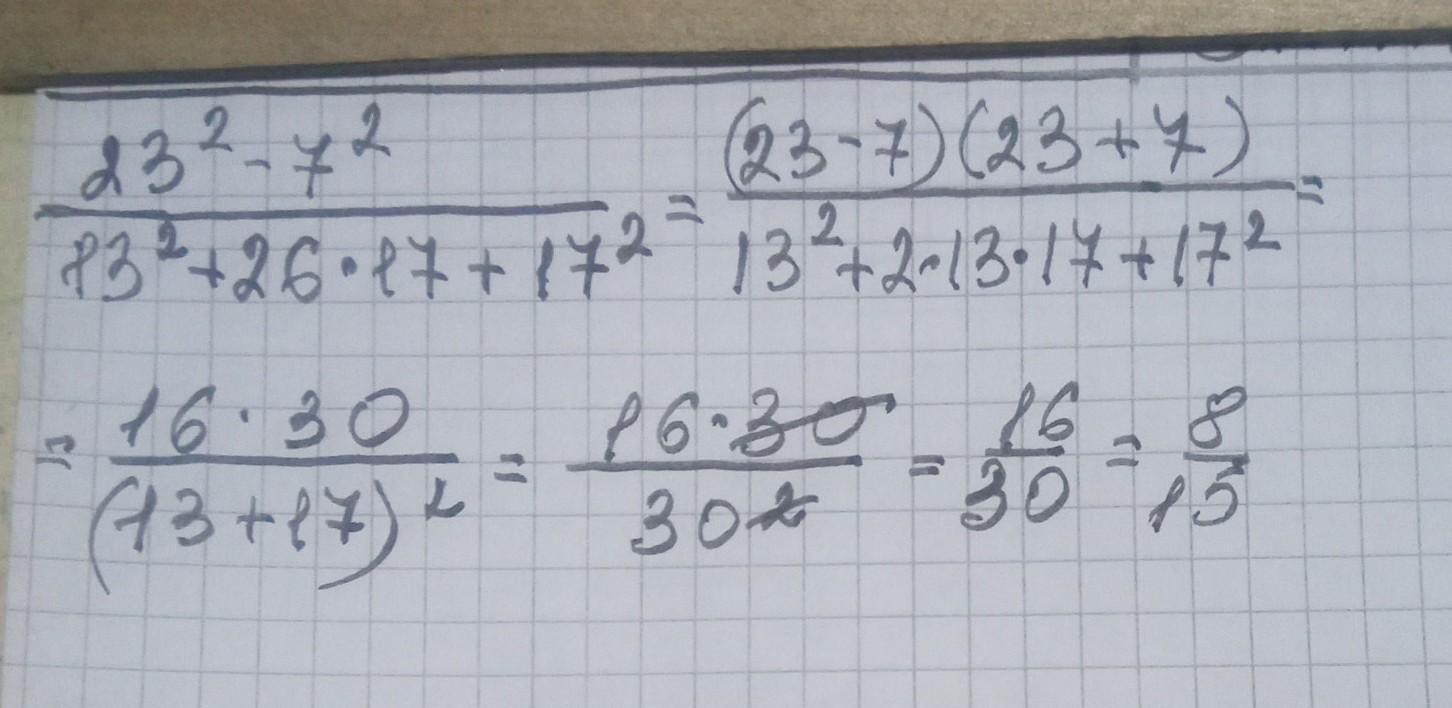 23² - 7² / 13² + 26 · 17 + 17² = (23 - 7)(23 + 7) / 13² + 2 · 13 · 17 + 17² =
= 16 · 30 / (13 + 17)² = 16 · 30 / 30² = 16 / 30 = 8 / 15